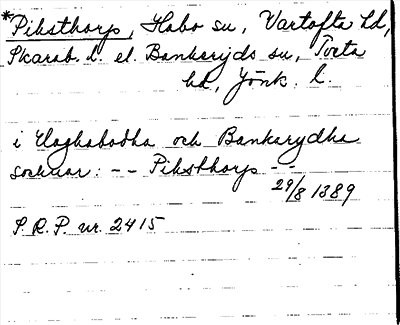 *Piksthorp, Habo sn, Vartofta hd,
Skarab. l. el. Bankeryds sn, Tveta
hd, Jönk. l.
i Haghabodha och Bankarydha
socknar: -- Piksthorp --
29/8 1389
S.R.P. nr. 2415